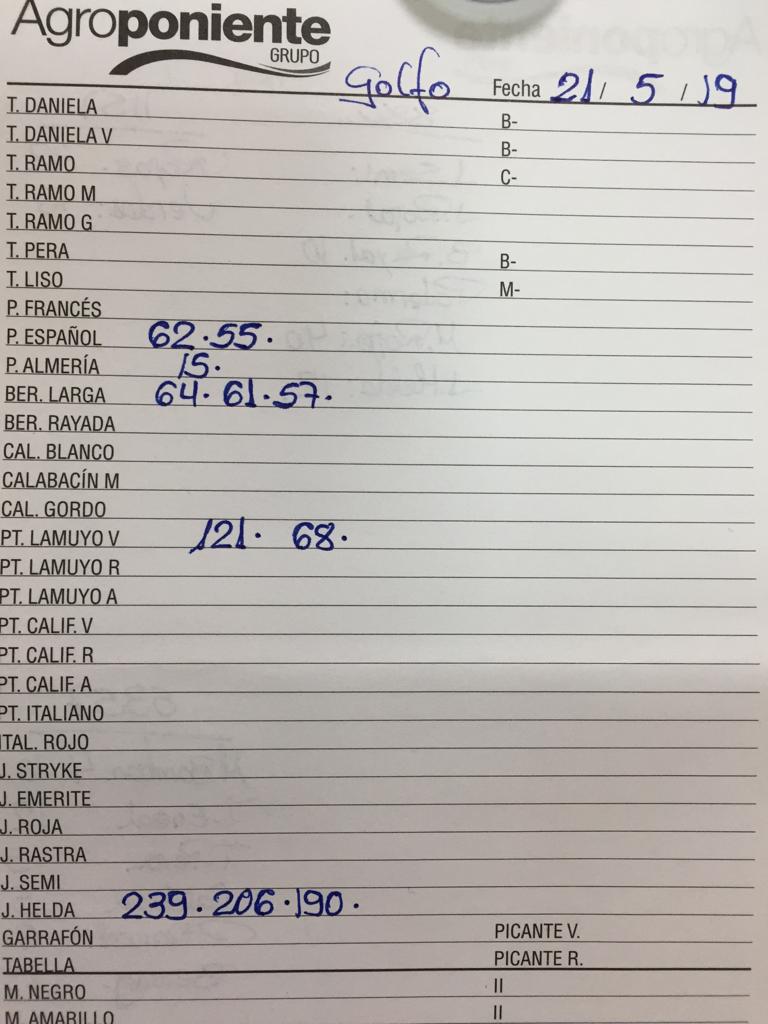 Agroponiente
GRUPO
Golfo Fecha 21/ 5 / 19
T. DANIELA B-
T. DANIELA V B-
T. RAMO C-
T. RAMO M
T. RAMO G
T. PERA B-
T. LISO M-
P. FRANCÉS
P. ESPAÑOL 62.55.
P. ALMERÍA 15.
BER. LARGA 64.61.57.
BER. RAYADA
CAL. BLANCO
CALABACÍN M
CAL. GORDO
PT. LAMUYO V 121. 68.
PT. LAMUYO R
PT. LAMUYO A
PT. CALIF. V
PT. CALIF. R
PT. CALIF. A
PT. ITALIANO
ITAL. ROJO
J. STRYKE
J. EMERITE
J. ROJA
J. RASTRA
J. SEMI
J. HELDA 239.206.190.
GARRAFÓN PICANTE V.
TABELLA PICANTE R.
M. NEGRO II
M. AMARILLO II